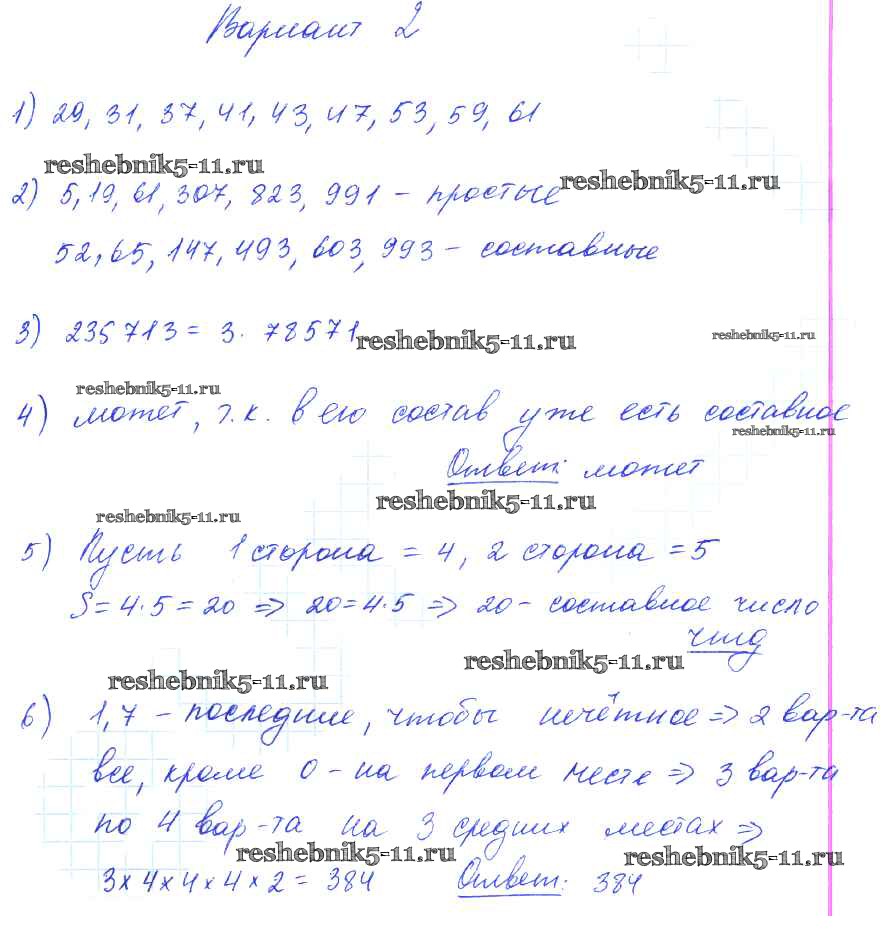 Вариант 2
1) 29, 31, 37, 41, 43, 47, 53, 59, 61
reshebnik5-11.ru
reshebnik5-11.ru
2) 5, 19, 61, 307, 823, 991 – простые
52, 65, 147, 493, 603, 993 – составные
3) 235713 = 3 · 78571
reshebnik5-11.ru
reshebnik5-11.ru
reshebnik5-11.ru
4) может, т.к. в его состав уже есть составное
reshebnik5-11.ru
Ответ: может
reshebnik5-11.ru
reshebnik5-11.ru
5) Пусть 1 сторона = 4, 2 сторона = 5
S = 4 · 5 = 20 ⇒ 20 = 4 · 5 ⇒ 20 – составное число
чтд
reshebnik5-11.ru
reshebnik5-11.ru
6) 1, 7 – последние, чтобы нечётное ⇒ 2 вар-та
все, кроме 0 – на первом месте ⇒ 3 вар-та
по 4 вар-та на 3 средних местах ⇒
reshebnik5-11.ru
reshebnik5-11.ru
3 × 4 × 4 × 4 × 2 = 384 Ответ: 384